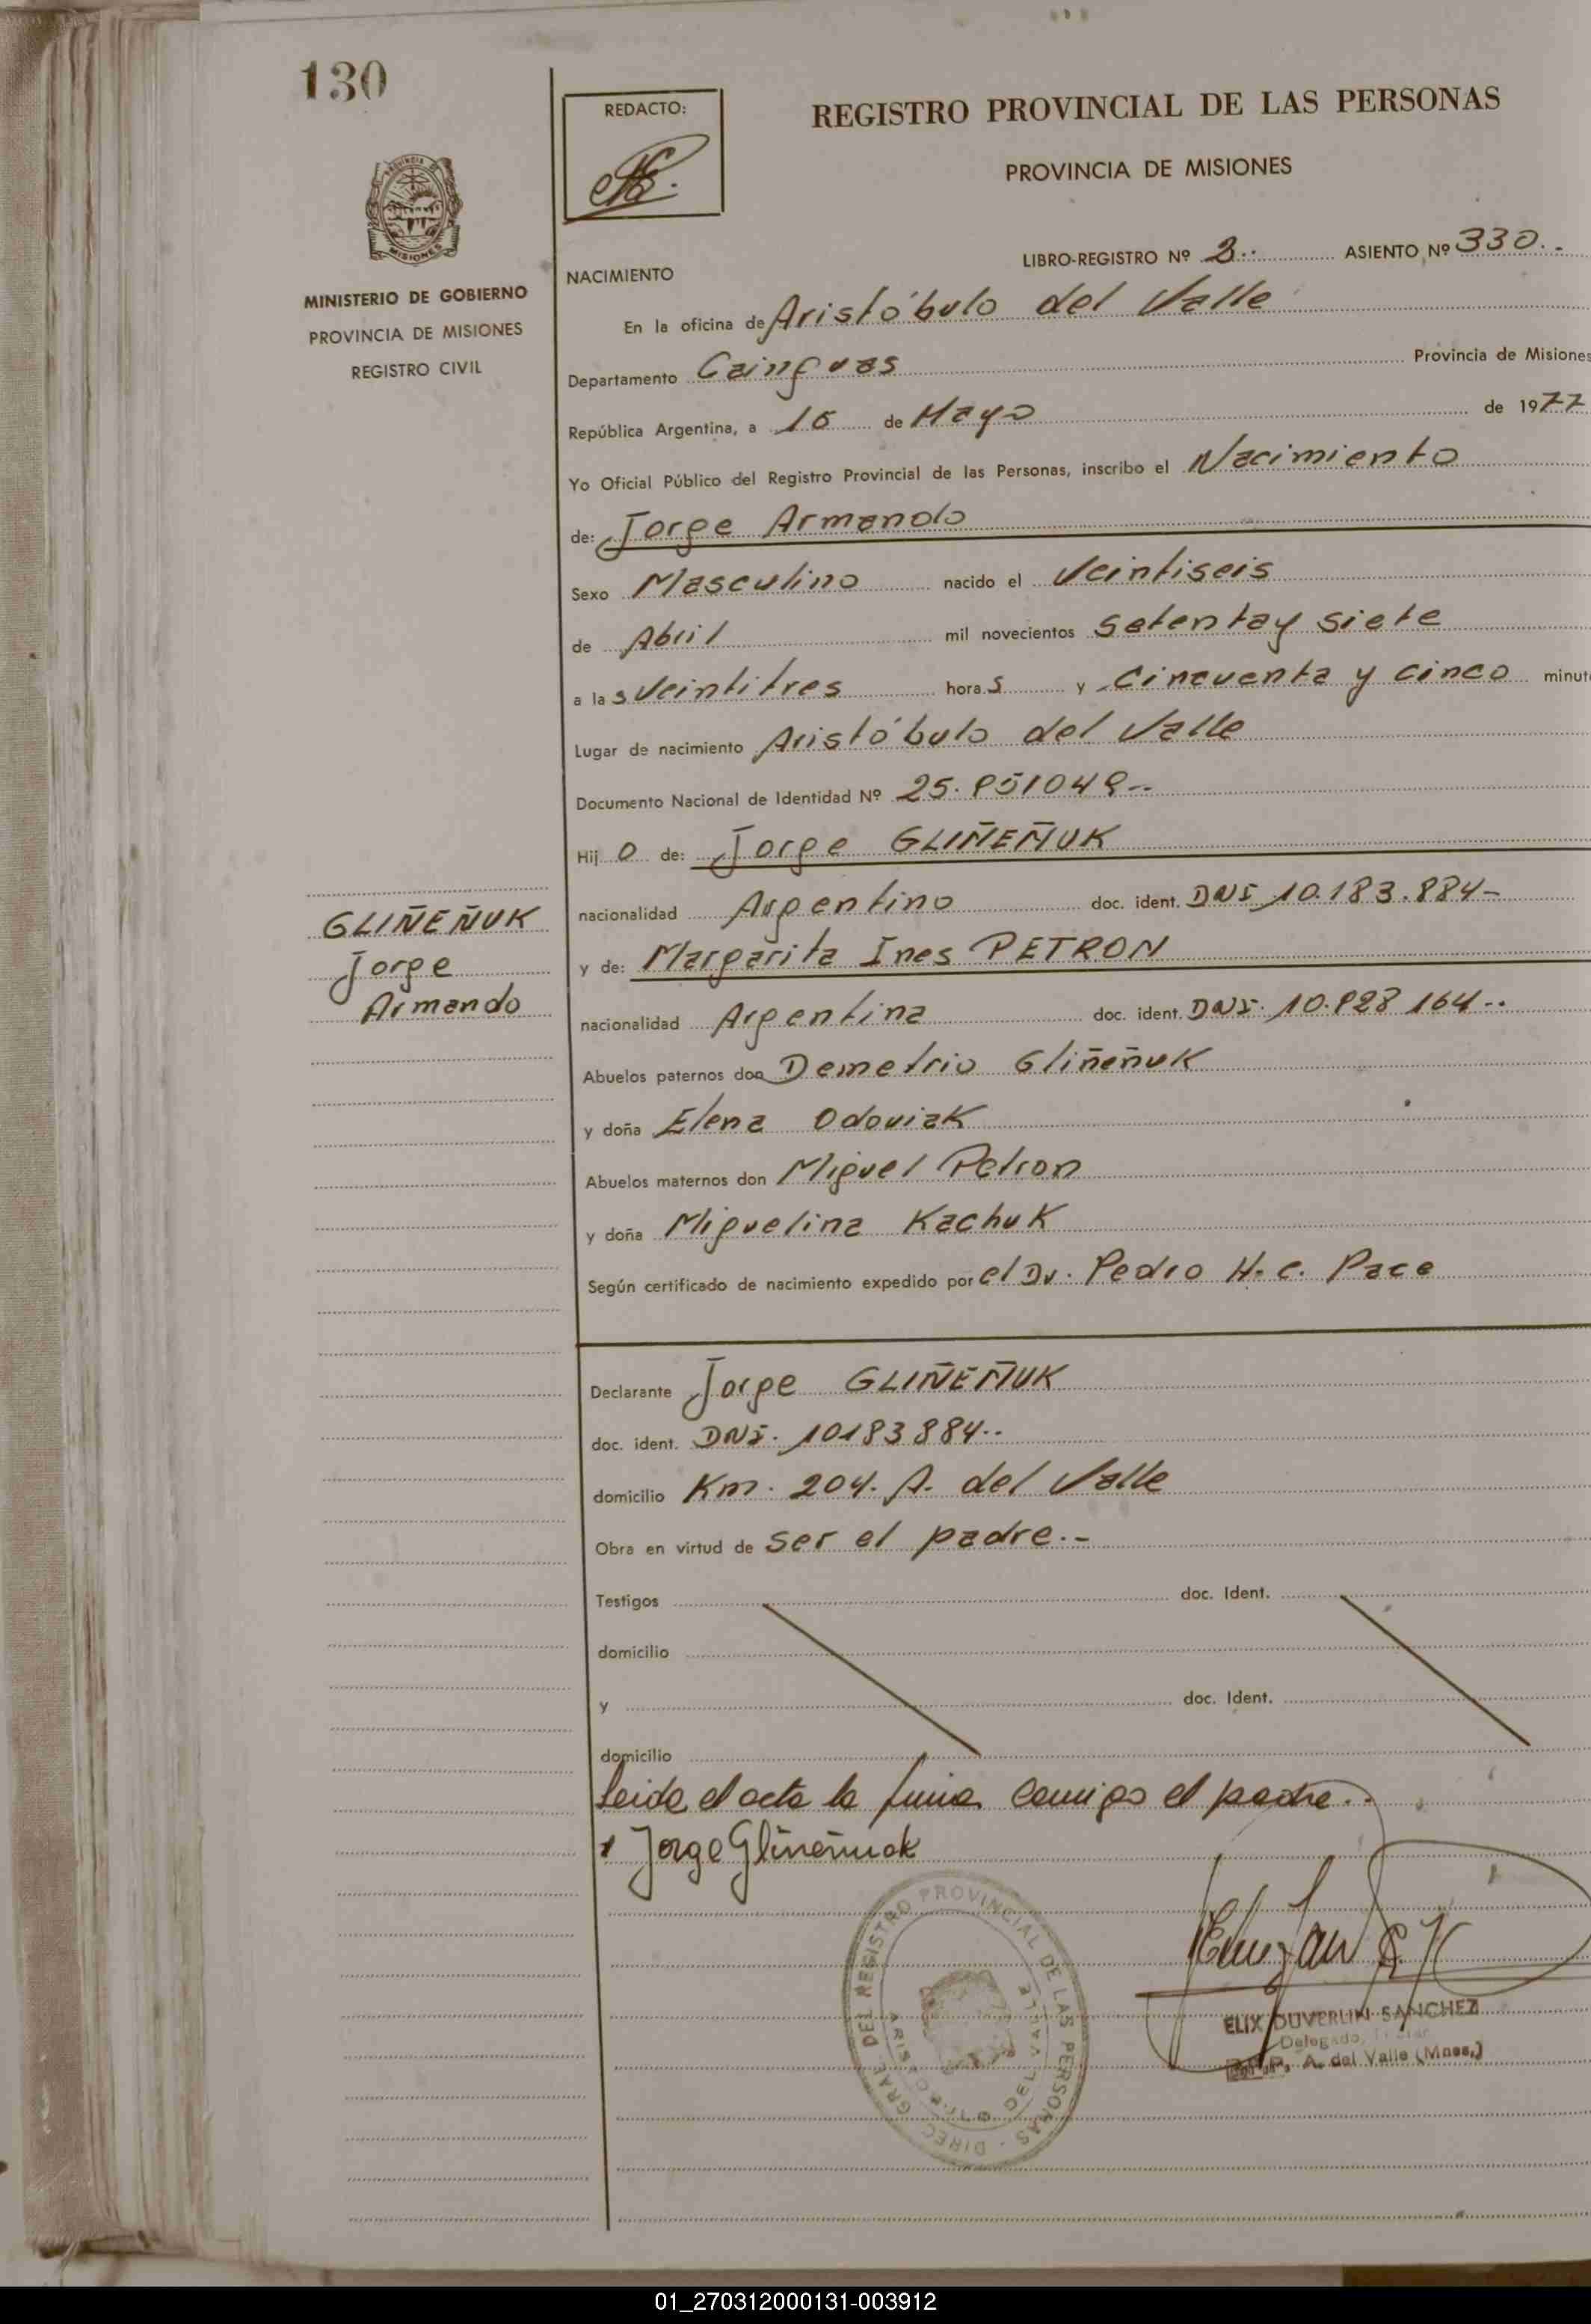 130
REDACTO:
REGISTRO PROVINCIAL DE LAS PERSONAS
PROVINCIA DE MISIONES
MISIONES
MINISTERIO DE GOBIERNO
PROVINCIA DE MISIONES
REGISTRO CIVIL
LIBRO-REGISTRO Nº 2.. ASIENTO Nº 330.-
NACIMIENTO
En la oficina de Aristóbulo del Valle
Departamento Cainguas Provincia de Misiones
República Argentina, a 16 de Mayo de 1977
Yo Oficial Público del Registro Provincial de las Personas, inscribo el Nacimiento
de: Jorge Armando
Sexo Masculino nacido el Veintiseis
de Abril mil novecientos Setenta y siete
a las Veintitres horas y Cincuenta y cinco minut
Lugar de nacimiento Aristóbulo del Valle
Documento Nacional de Identidad Nº 25.851049--
Hijo de: Jorge GLIÑEÑUK
nacionalidad Argentino doc. ident. DNI 10.183.884-
y de: Margarita Ines PETRON
nacionalidad Argentina doc. ident. DNI. 10.828 164--
Abuelos paternos don Demetrio Gliñeñuk
y doña Elena Odoviak
Abuelos maternos don Miguel Petron
y doña Miguelina Kachuk
Según certificado de nacimiento expedido por el Dr. Pedro H. C. Pace
GLIÑEÑUK
Jorge
Armando
Declarante Jorge GLIÑEÑUK
doc. ident. DNI. 10183884--
domicilio Km. 204. A. del Valle
Obra en virtud de ser el padre.-
Testigos doc. Ident.
domicilio
y doc. Ident.
domicilio
Leida el acta la firma conmigo el padre..
Jorge Gliñeñuk
DIREC. GRAL. DEL REGISTRO PROVINCIAL DE LAS PERSONAS
ARISTOBULO DEL VALLE
ELIX DUVERLIN SANCHEZ
Delegado Titular
A. del Valle (Mnes.)
01_270312000131-003912